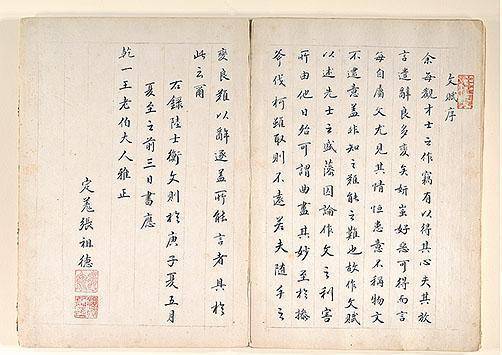 文賦序
余每觀才士之作竊有以得其心夫其放
言遣辭良多變矣妍蚩好惡可得而言
每自屬文尤見其情恒患意不稱物文
不逮意蓋非知之難能之難也故作文賦
以述先士之盛藻因論作文之利害
所由他日殆可謂曲盡其妙至於操
斧伐柯雖取則不遠若夫隨手之
變良難以辭逐蓋所能言者具於
此云爾
右錄陸士衡文則於庚子夏五月
夏至之前三日書應
乾一王老伯夫人雅正
定菴張祖德